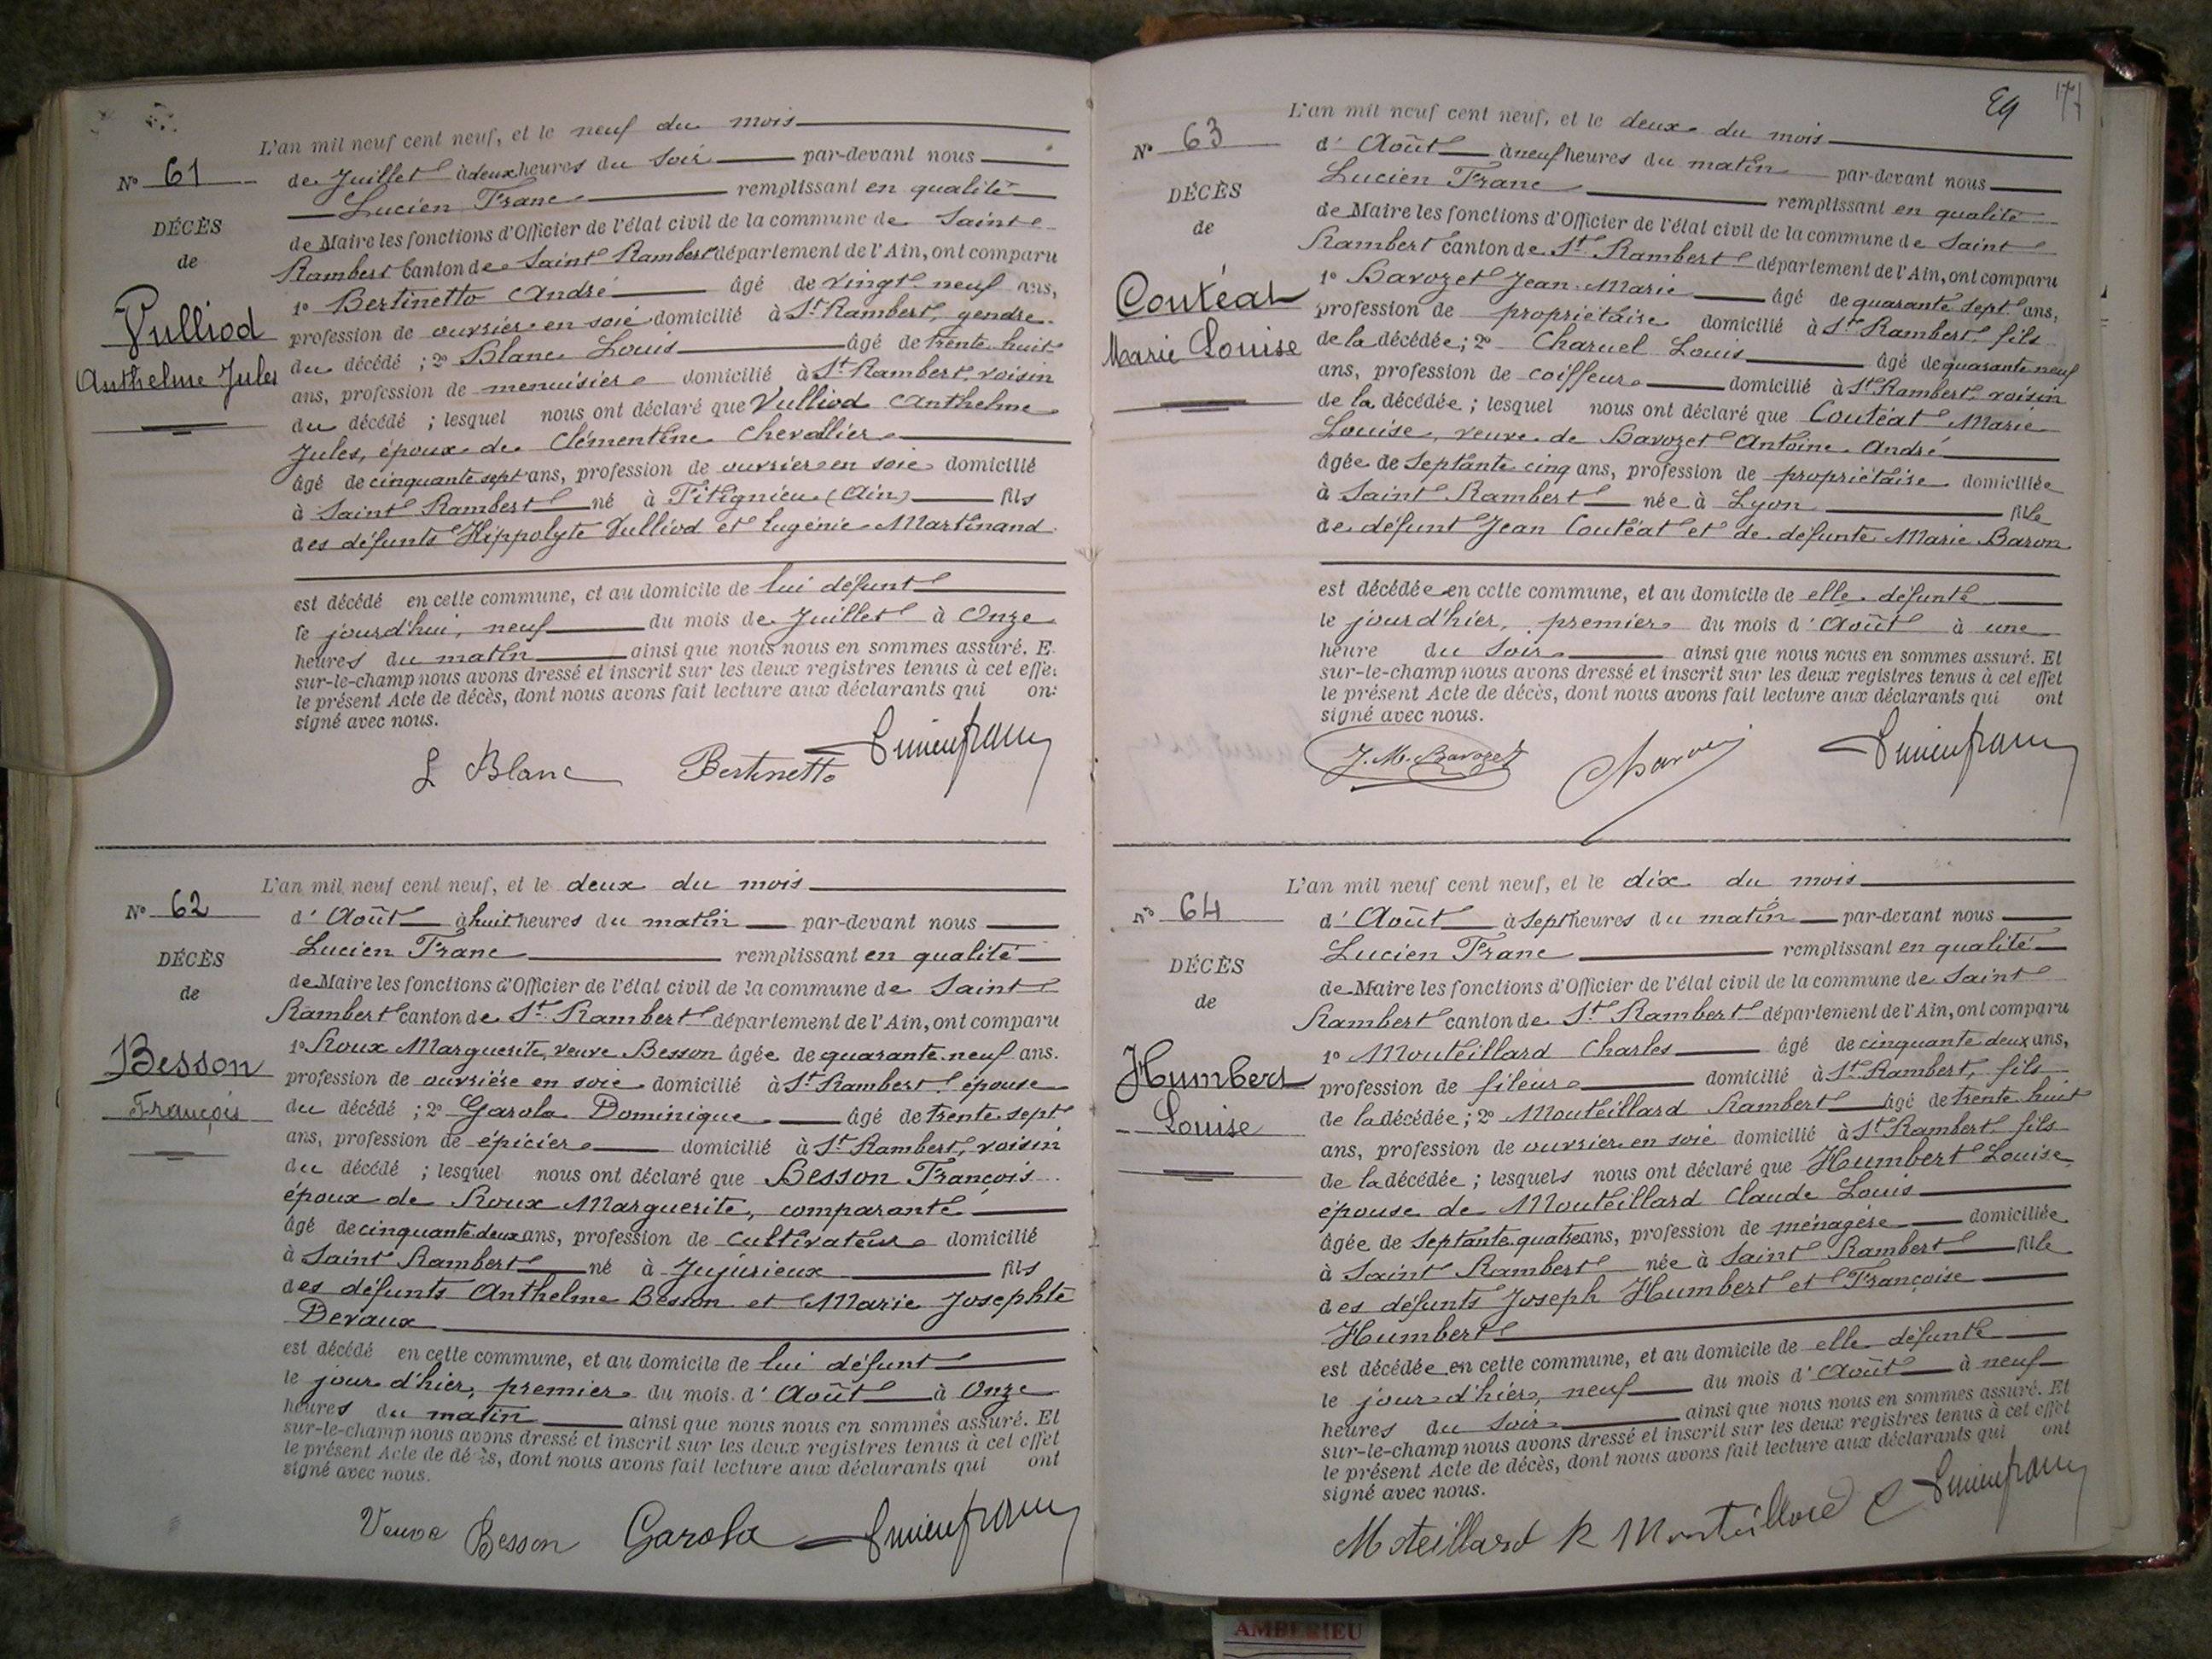 L'an mil neuf cent neuf, et le neuf du mois
N° 61
de Juillet à deux heures du soir par-devant nous
Lucien Franc remplissant en qualité
DÉCÈS
de Maire les fonctions d'Officier de l'état civil de la commune de Saint
de
Rambert Canton de Saint Rambert département de l'Ain, ont comparu
1° Bertinetto André âgé de vingt neuf ans,
Vulliod
profession de ouvrier en soie domicilié à St Rambert, gendre
Anthelme Jules
du décédé ; 2° Blanc Louis âgé de trente huit
ans, profession de menuisier domicilié à St Rambert, voisin
du décédé ; lesquel nous ont déclaré que Vulliod Anthelme
Jules, époux de Clémentine Chevallier
âgé de cinquante sept ans, profession de ouvrier en soie domicilié
à Saint Rambert né à Pitignieu (Ain) fils
des défunts Hippolyte Vulliod et Eugénie Martinand
est décédé en cette commune, et au domicile de lui défunt
le jourd'hui, neuf du mois de Juillet à Onze
heures du matin ainsi que nous nous en sommes assuré. E
sur-le-champ nous avons dressé et inscrit sur les deux registres tenus à cet effe
le présent Acte de décès, dont nous avons fait lecture aux déclarants qui on
signé avec nous.
L Blanc Bertinetto Lucien franc
L'an mil neuf cent neuf, et le deux du mois
N° 62
d' Août à huit heures du matin par-devant nous
Lucien Franc remplissant en qualité
DÉCÈS
de Maire les fonctions d'Officier de l'état civil de la commune de Saint
de
Rambert canton de St Rambert département de l'Ain, ont comparu
1° Roux Marguerite, veuve Besson âgée de quarante neuf ans.
Besson
profession de ouvrière en soie domicilié à St Rambert, épouse
François
du décédé ; 2° Garola Dominique âgé de trente sept
ans, profession de épicier domicilié à St Rambert, voisin
du décédé ; lesquel nous ont déclaré que Besson François
époux de Roux Marguerite, comparante
âgé de cinquante deux ans, profession de cultivateur domicilié
à Saint Rambert né à Jujurieux fils
des défunts Anthelme Besson et Marie Josephte
Devaux
est décédé en cette commune, et au domicile de lui défunt
le jour d'hier, premier du mois d' Août à Onze
heures du matin ainsi que nous nous en sommes assuré. Et
sur-le-champ nous avons dressé et inscrit sur les deux registres tenus à cet effet
le présent Acte de décès, dont nous avons fait lecture aux déclarants qui ont
signé avec nous.
Veuve Besson Garola Lucien franc
89
L'an mil neuf cent neuf, et le deux du mois
N° 63
d' Août à neuf heures du matin par-devant nous
Lucien Franc remplissant en qualité
DÉCÈS
de Maire les fonctions d'Officier de l'état civil de la commune de Saint
de
Rambert canton de St Rambert département de l'Ain, ont comparu
1° Bavozet Jean Marie âgé de quarante sept ans,
Coutéat
profession de propriétaire domicilié à St Rambert, fils
Marie Louise
de la décédée ; 2° Charvel Louis âgé de quarante neuf
ans, profession de coiffeur domicilié à St Rambert, voisin
de la décédée ; lesquel nous ont déclaré que Coutéat Marie
Louise, veuve de Bavozet Antoine André
âgée de septante cinq ans, profession de propriétaire domiciliée
à Saint Rambert née à Lyon fille
de défunt Jean Coutéat et de défunte Marie Baron
est décédée en cette commune, et au domicile de elle défunte
le jour d'hier, premier du mois d' Août à une
heure du soir ainsi que nous nous en sommes assuré. Et
sur-le-champ nous avons dressé et inscrit sur les deux registres tenus à cet effet
le présent Acte de décès, dont nous avons fait lecture aux déclarants qui ont
signé avec nous.
J. M. Bavozet Lucien franc
L'an mil neuf cent neuf, et le dix du mois
N° 64
d' Août à sept heures du matin par-devant nous
Lucien Franc remplissant en qualité
DÉCÈS
de Maire les fonctions d'Officier de l'état civil de la commune de Saint
de
Rambert canton de St Rambert département de l'Ain, ont comparu
1° Mouteillard Charles âgé de cinquante deux ans,
Humbert
profession de fileur domicilié à St Rambert, fils
Louise
de la décédée ; 2° Mouteillard Rambert âgé de trente huit
ans, profession de ouvrier en soie domicilié à St Rambert fils
de la décédée ; lesquels nous ont déclaré que Humbert Louise
épouse de Mouteillard Claude Louis
âgée de septante quatre ans, profession de ménagère domiciliée
à Saint Rambert née à Saint Rambert fille
des défunts Joseph Humbert et Françoise
Humbert
est décédée en cette commune, et au domicile de elle défunte
le jour d'hier, neuf du mois d' Août à neuf
heures du soir ainsi que nous nous en sommes assuré. Et
sur-le-champ nous avons dressé et inscrit sur les deux registres tenus à cet effet
le présent Acte de décès, dont nous avons fait lecture aux déclarants qui ont
signé avec nous.
Moteillard R Monteillard C Lucien franc
AMBERIEU